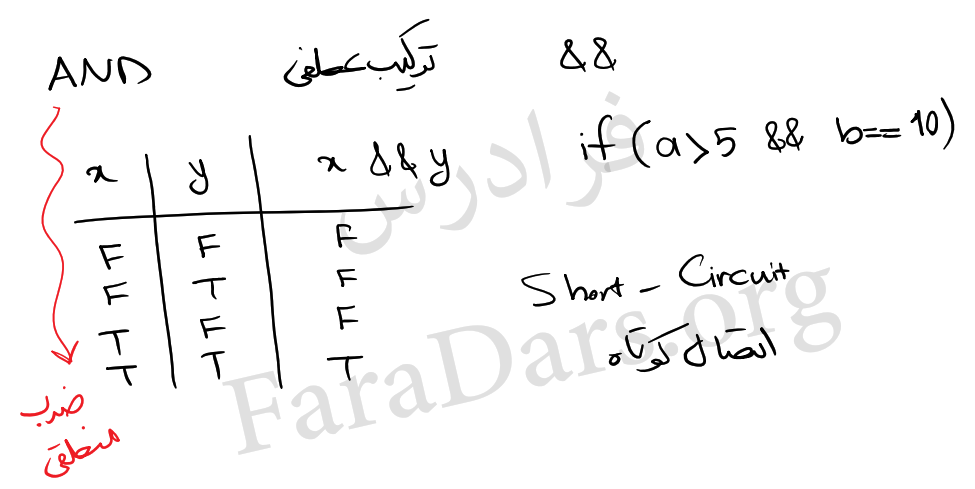 AND ترکیب عطفی &&
if (a>5 && b==10)
x y x && y
F F F
F T F
T F F
T T T
Short - Circuit
اتصال کوتاه
ضرب
منطقی
فرادرس
FaraDars.org